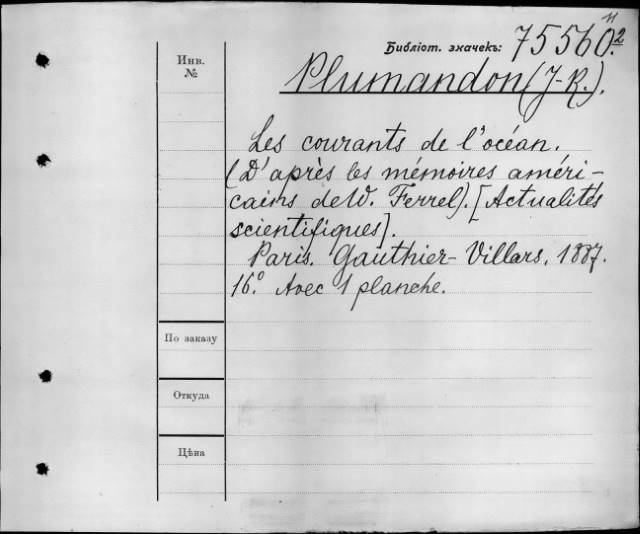 Библіот. значекъ: 75560.²
Инв.
№
Plumandon (J-R.).
Les courants de l'océan.
(D'après les mémoires améri-
cains de W. Ferrel). [Actualités
scientifiques].
Paris. Gauthier-Villars, 1887.
16.° Avec 1 planche.
По заказу
Откуда
Цѣна